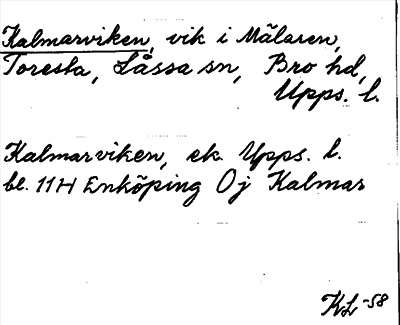 Kalmarviken, vik i Mälaren,
Toresta, Låssa sn, Bro hd,
Upps. l.
Kalmarviken, ek. Upps. l.
bl. 11H Enköping Oj Kalmar
KL -58